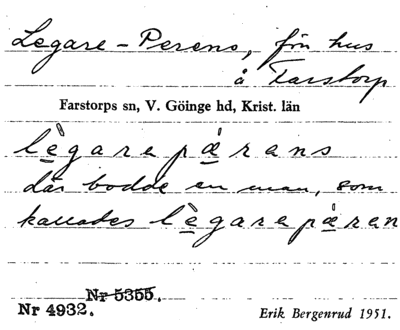 Legare-Perens, fön hus
å Farstorp
Farstorps sn, V. Göinge hd, Krist. län
lè̲garepæ̲̀rans
där bodde en man, som
kallades lè̲garepæ̲̀ran
Nr 5355.
Nr 4932.
Erik Bergenrud 1951.